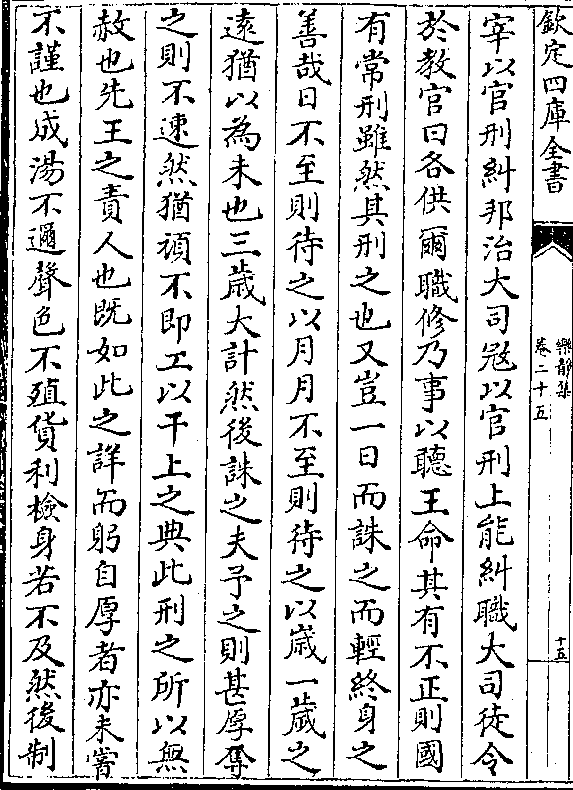 欽定四庫全書
樂静集
卷二十五
十五
宰以官刑糾邦治大司冦以官刑上能糾職大司徒令
於教官曰各供爾職修乃事以聽王命其有不正則國
有常刑雖然其刑之也又豈一日而誅之而輕終身之
善哉日不至則待之以月月不至則待之以歲一歲之
逺猶以為未也三歲大計然後誅之夫予之則甚厚奪
之則不速然猶頑不即工以干上之典此刑之所以無
赦也先王之責人也既如此之詳而躬自厚者亦未嘗
不謹也成湯不邇聲色不殖貨利檢身若不及然後制